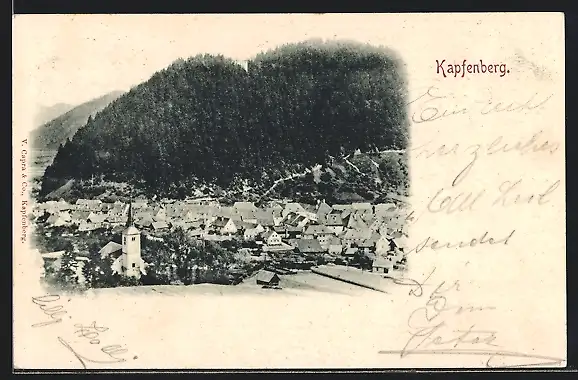 Kapfenberg.
V. Capra & Co., Kapfenberg.
Ein recht
herzliches
All Heil
sendet
Dir
Dein